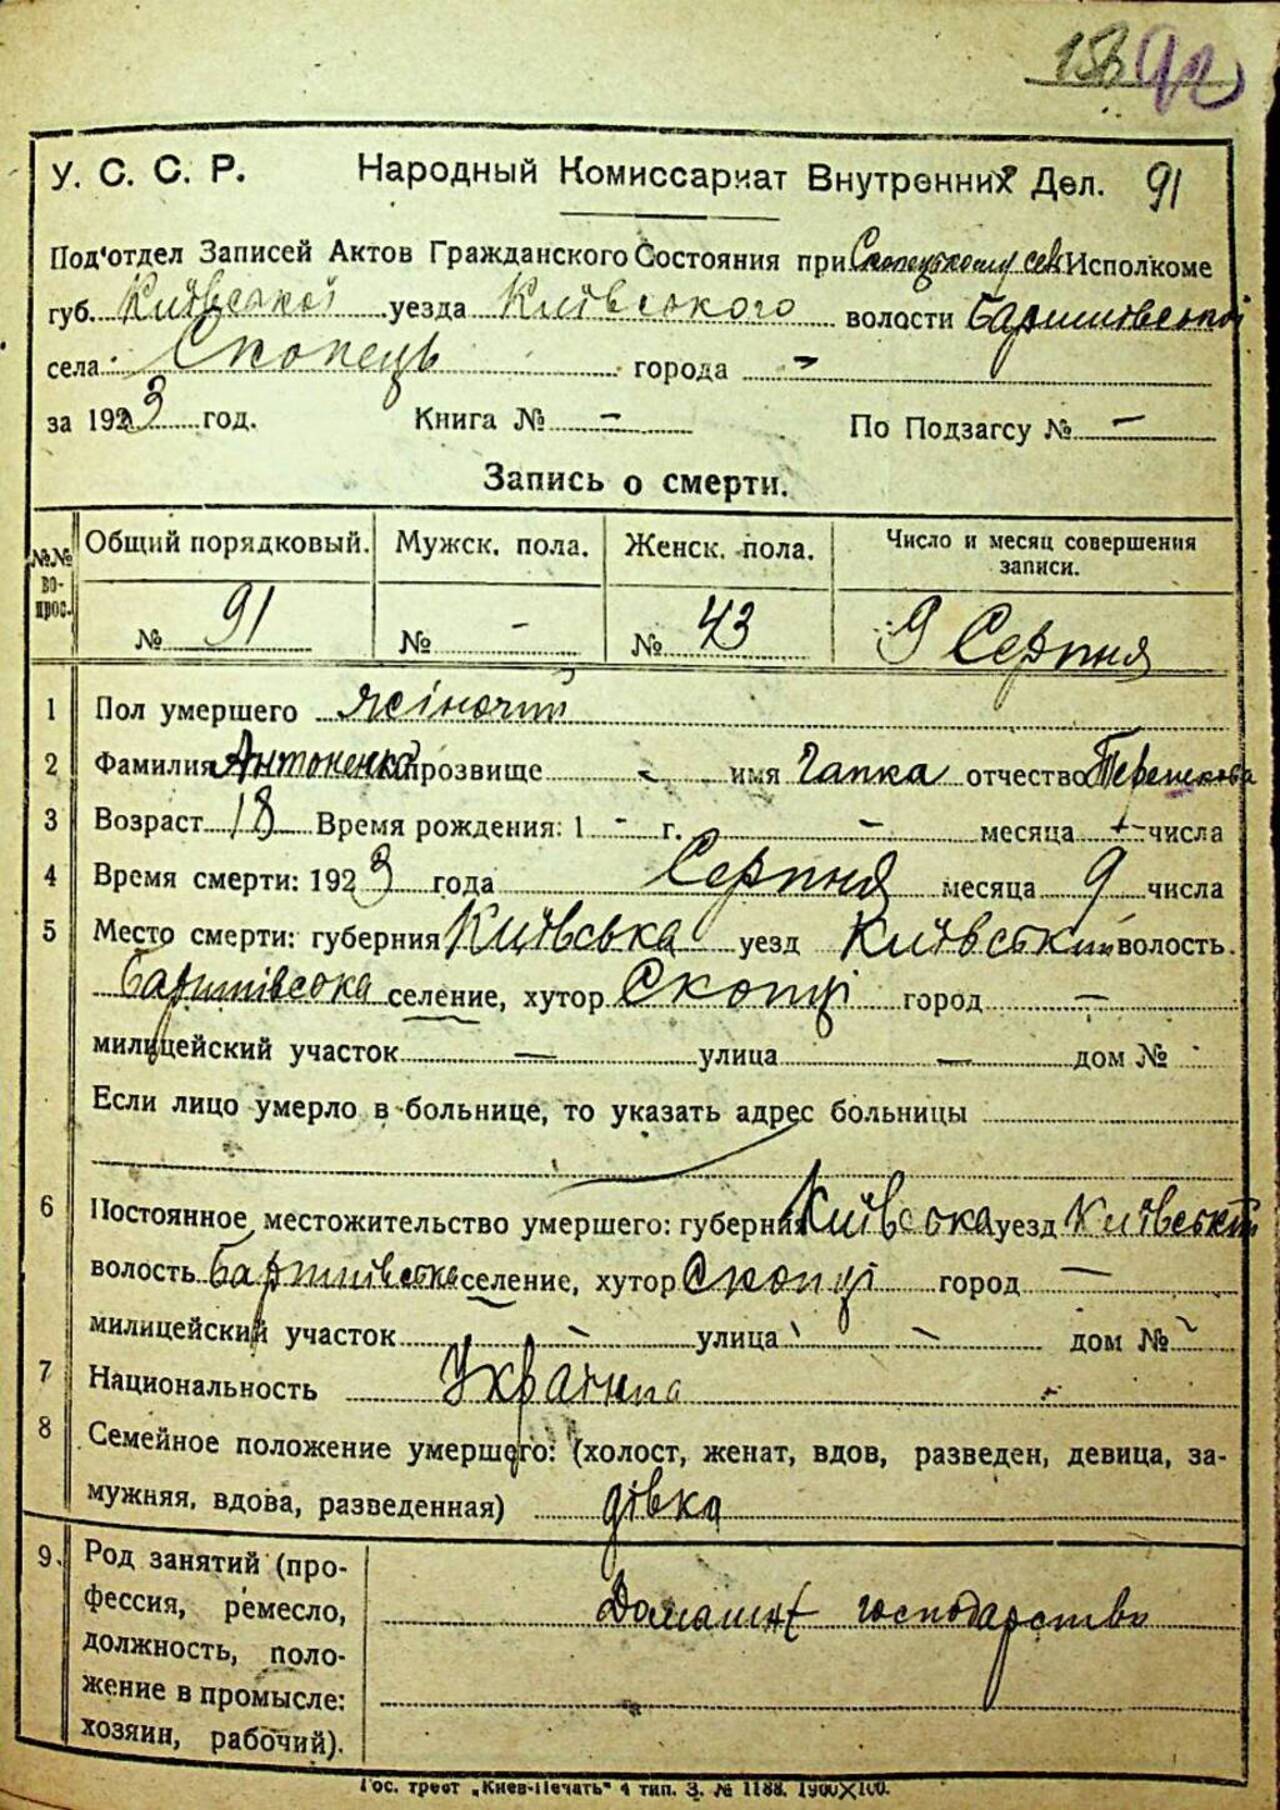 92
У. С. С. Р. Народный Комиссариат Внутренних Дел. 91
Под'отдел Записей Актов Гражданского Состояния при Исполкоме
губ. Київської уезда Київського волости Баришівської
села Скопець города -
за 1923 год. Книга № - По Подзагсу № -
Запись о смерти.
№№ во- прос. Общий порядковый. Мужск. пола. Женск. пола. Число и месяц совершения записи.
№ 91 № - № 43 9 Серпня
1 Пол умершего жіночий
2 Фамилия Антоненко прозвище - имя Гапка отчество
3 Возраст 18 Время рождения: 1 - г. - месяца - числа
4 Время смерти: 1923 года Серпня месяца 9 числа
5 Место смерти: губерния Київська уезд Київський волость.
Баришівська селение, хутор Скопці город —
милицейский участок — улица — дом №
Если лицо умерло в больнице, то указать адрес больницы
6 Постоянное местожительство умершего: губерния Київська уезд Київський
волость Баришівська селение, хутор Скопці город —
милицейский участок - улица - дом № -
7 Национальность Україна
8 Семейное положение умершего: (холост, женат, вдов, разведен, девица, за-
мужняя, вдова, разведенная) дівка
9. Род занятий (про-
фессия, ремесло, Домашнє господарство
должность, поло-
жение в промысле:
хозяин, рабочий).
Гос. трест „Киев-Печать" 4 тип. З. № 1188. 1900×100.